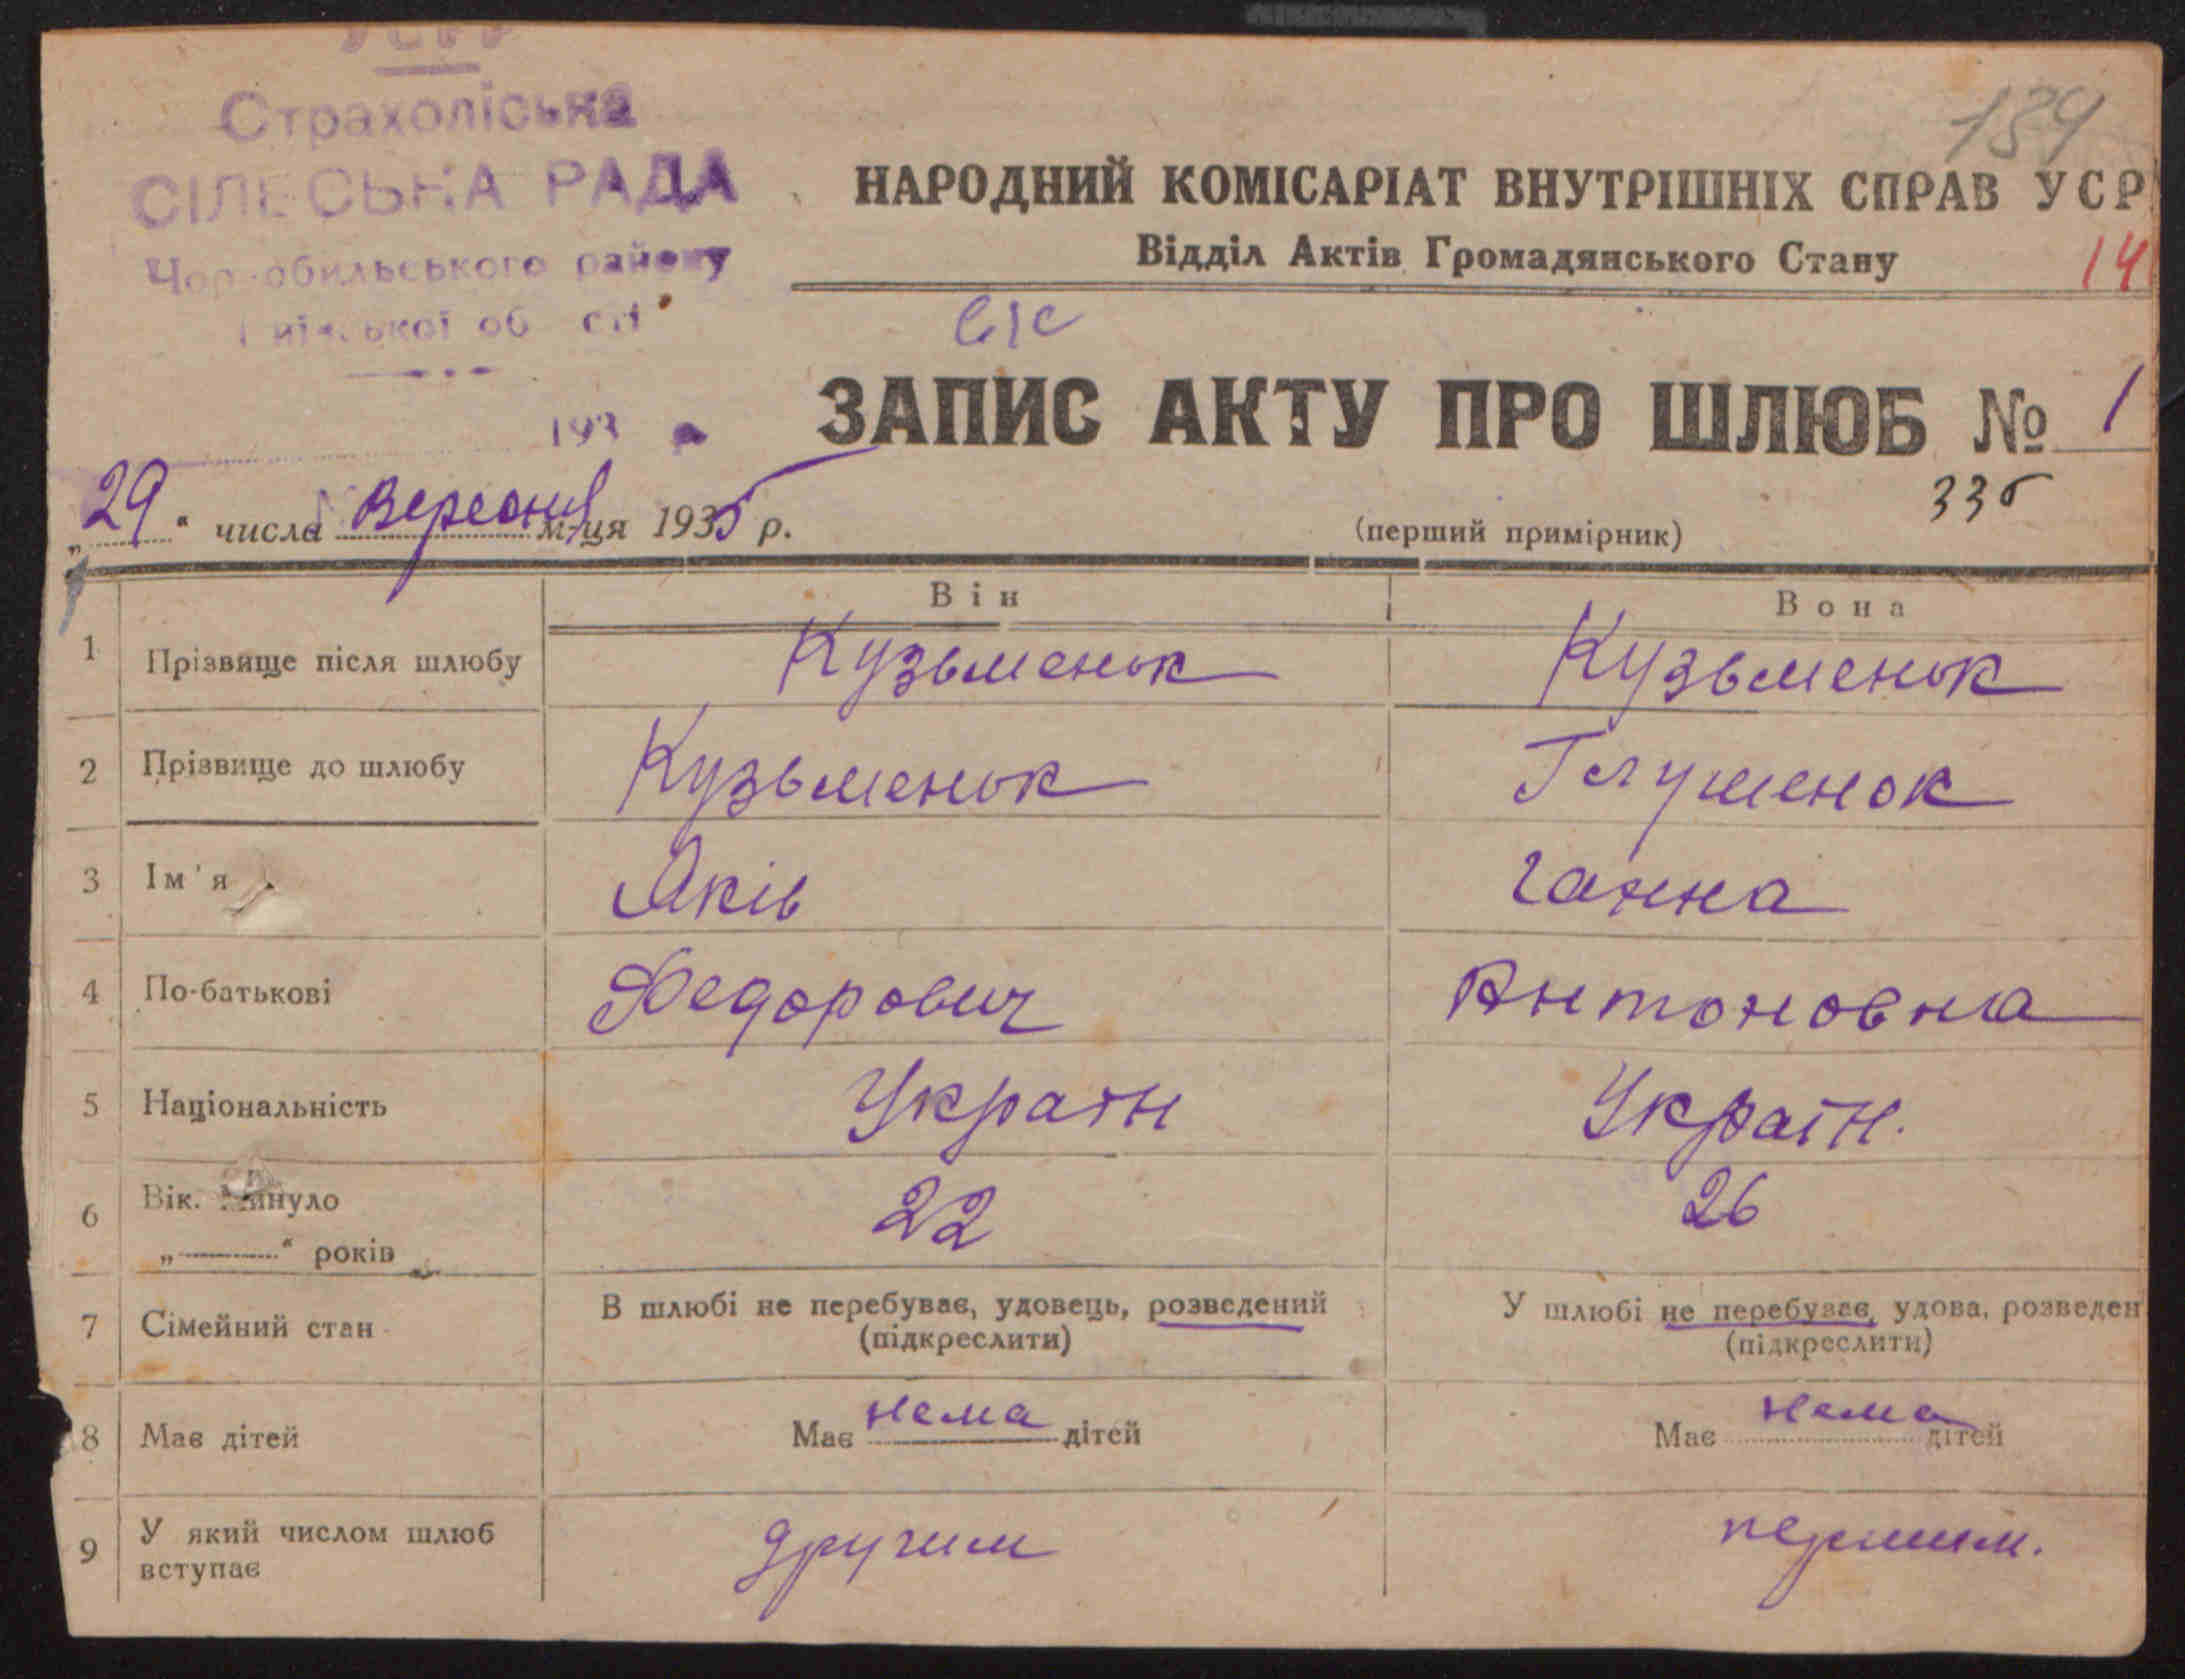 УСРР
Страхоліська
СІЛЬСЬКА РАДА
Чорнобильського району
Київської області
193
189
НАРОДНИЙ КОМІСАРІАТ ВНУТРІШНІХ СПРАВ УСР
Відділ Актів Громадянського Стану
14
с/с
ЗАПИС АКТУ ПРО ШЛЮБ № 1
„29“ числа Вересня м-ця 1935 р.
(перший примірник)
Він Вона
1 Прізвище після шлюбу Кузьменок Кузьменок
2 Прізвище до шлюбу Кузьменок Глушенок
3 Ім'я Яків Ганна
4 По-батькові Федорович Антоновна
5 Національність Україн Україн.
6 Вік. Минуло 22 26
„ “ років
7 Сімейний стан В шлюбі не перебуває, удовець, розведений У шлюбі не перебуває, удова, розведен
(підкреслити) (підкреслити)
8 Має дітей Має нема дітей Має нема дітей
9 У який числом шлюб другим першим.
вступає